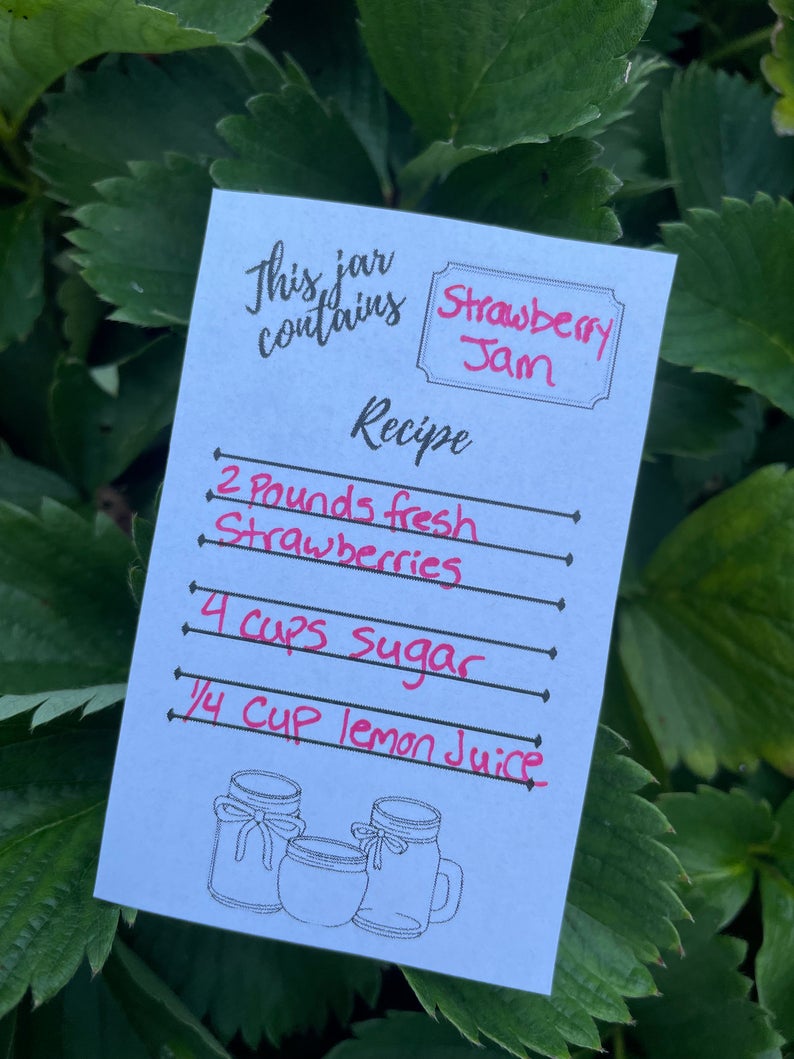 This jar
contains
Strawberry
Jam
Recipe
2 Pounds fresh
Strawberries
4 cups sugar
1/4 cup lemon Juice